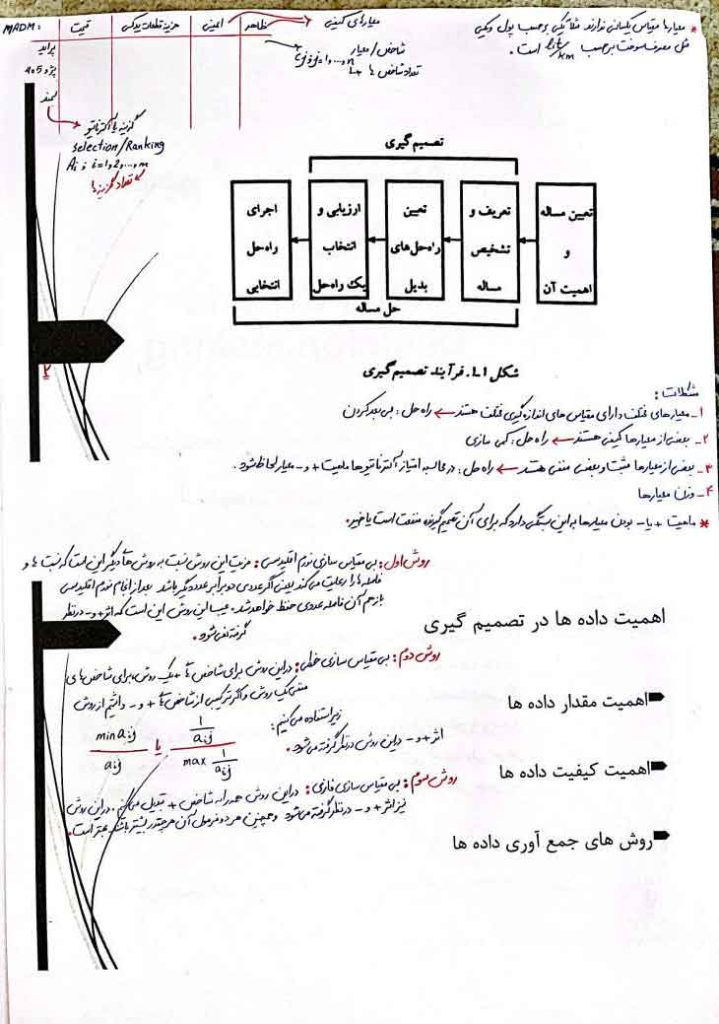 MADM:
قیمت
هزینه قطعات یدکی
ایمنی
ظاهر
معیارهای کیفی
پراید
پژو ۴۰۵
سمند
شاخص / معیار
Cj ; j=1,...,n
تعداد شاخص ها
* معیارها مقیاس یکسانی ندارند مثلاً یکی برحسب پول و یکی
مثل مصرف سوخت برحسب lit/km است.
گزینه یا آلترناتیو
Selection/Ranking
Ai ; i=1,2,...,m
تعداد گزینه ها
تصمیم گیری
تعیین مساله
و
اهمیت آن
تعریف و
تشخیص
مساله
تعیین
راه‌حل‌های
بدیل
ارزیابی و
انتخاب
یک راه‌حل
اجرای
راه‌حل
انتخابی
حل مساله
شکل ۱ـ۱. فرآیند تصمیم گیری
۲
مشکلات:
۱ـ معیارهای مختلف دارای مقیاس های اندازه گیری مختلف هستند ← راه حل: بی بعد کردن
۲ـ بعضی از معیارها کیفی هستند ← راه حل: کمی سازی
۳ـ بعضی از معیارها مثبت و بعضی منفی هستند ← راه حل: در محاسبه امتیاز آلترناتیوها ماهیت + و - معیار لحاظ شود.
۴ـ وزن معیارها
* ماهیت + یا - بودن معیارها به این بستگی دارد که برای آن تصمیم گیرنده منفعت است یا خیر.
روش اول: بی مقیاس سازی نورم اقلیدسی: مزیت این روش نسبت به روش های دیگر این است که نسبت ها و
فاصله ها را رعایت می کند یعنی اگر عددی دو برابر عدد دیگر باشد بعد از انجام نورم اقلیدسی
باز هم آن فاصله عددی حفظ خواهد شد. عیب این روش این است که اثر + و - در نظر
گرفته نمی شود.
اهمیت داده ها در تصمیم گیری
روش دوم: بی مقیاس سازی خطی: در این روش برای شاخص های + یک روش، برای شاخص های
منفی یک روش و اگر ترکیبی از شاخص های + و - داشتیم از روش
زیر استفاده می کنیم:
min aij / aij یا 1/aij / max 1/aij
اثر + و - در این روش در نظر گرفته می شود.
اهمیت مقدار داده ها
اهمیت کیفیت داده ها
روش سوم: بی مقیاس سازی فازی: در این روش همه را به شاخص + تبدیل می کند. در این روش
نیز اثر + و - در نظر گرفته می شود و همچنین هر دو فرمول آن هر چقدر بیشتر باشد بهتر است.
روش های جمع آوری داده ها